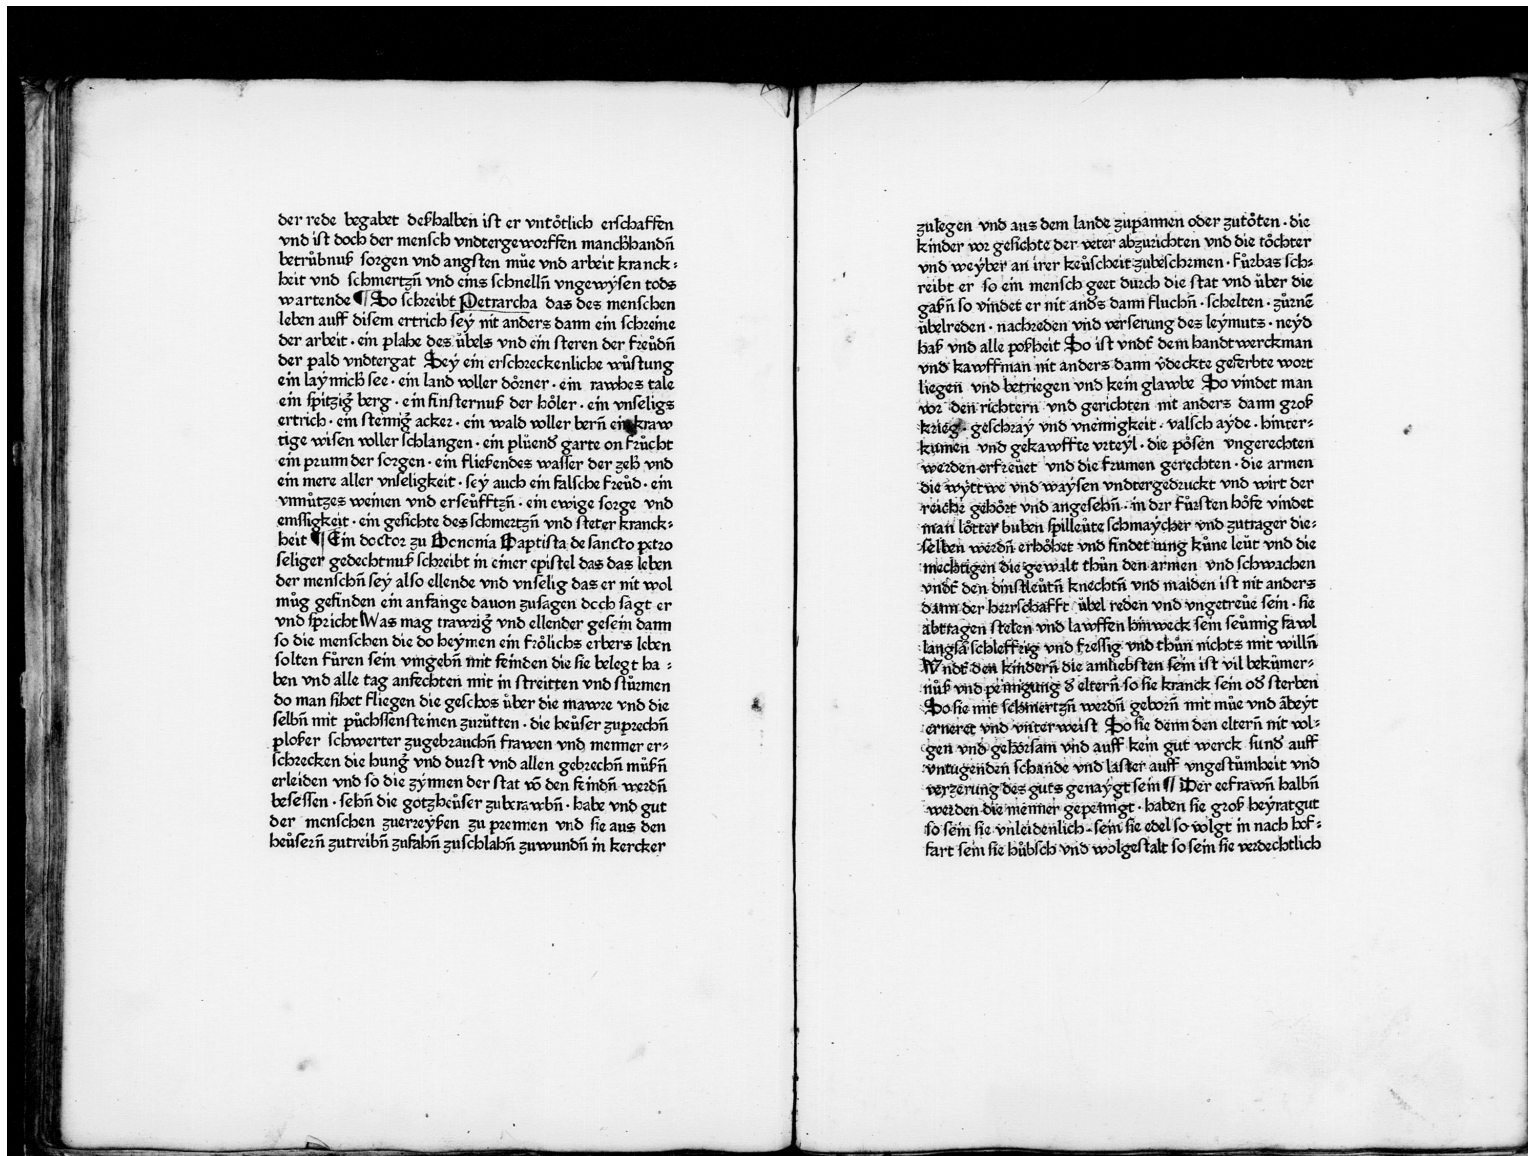 der rede begabet deßhalben ist er vntötlich erschaffen
vnd ist doch der mensch vndtergeworffen manchhandn̄
betrübnuß sorgen vnd angsten müe vnd arbeit kranck:
heit vnd schmertzn̄ vnd eins schnelln̄ vngewÿsen tods
wartende ¶ So schreibt Petrarcha das des menschen
leben auff disem ertrich seÿ nit anders dann ein schreine
der arbeit · ein plahe des übels vnd ein steren der freüdn̄
der pald vndtergat Seÿ ein erschreckenliche wüstung
ein laÿmich see · ein land voller dörner · ein rawhes tale
ein spitzig berg · ein finsternuß der höler · ein vnseligs
ertrich · ein steinig acker · ein wald voller bern̄ ein kraw
tige wisen voller schlangen · ein plüend garte on frücht
ein prunn der sorgen · ein fließendes wasser der zeh vnd
ein mere aller vnseligkeit · seÿ auch ein falsche freüd · ein
vnnützes weinen vnd erseüfftzn̄ · ein ewige sorge vnd
emssigkeit · ein gesichte des schmertzn̄ vnd steter kranck:
heit ¶ Ein doctor zu Bononia Baptista de sancto petro
seliger gedechtnuß schreibt in einer epistel das das leben
der menschn̄ seÿ also ellende vnd vnselig das er nit wol
müg gefinden ein anfange dauon zusagen doch sagt er
vnd spricht Was mag trawrig vnd ellender gesein dann
so die menschen die do heÿmen ein frölichs erbers leben
solten füren sein vmgebn̄ mit feinden die sie belegt ha :
ben vnd alle tag anfechten mit in streitten vnd stürmen
do man sihet fliegen die geschos über die mawre vnd die
selbn̄ mit püchssensteinen zurütten · die heüser zuprechn̄
ploßer schwerter zugebrauchn̄ frawen vnd menner er:
schrecken die hung vnd durst vnd allen gebrechn̄ müßn̄
erleiden vnd so die zÿnnen der stat vō den feindn̄ werdn̄
besessen · sehn̄ die gotzheüser zuberawbn̄ · habe vnd gut
der menschen zuerreÿßen zu prennen vnd sie aus den
heüsern̄ zutreibn̄ zufahn̄ zuschlahn̄ zuwundn̄ in kercker
zulegen vnd aus dem lande zupannen oder zutöten · die
kinder vor gesichte der veter abzurichten vnd die töchter
vnd weÿber an irer keüscheit zubeschemen · Fürbas sch:
reibt er so ein mensch geet durch die stat vnd über die
gaßn̄ so vindet er nit ands dann fluchn̄ · schelten · zürnē
übelreden · nachreden vnd verserung des leÿmuts · neÿd
haß vnd alle poßheit So ist vndt dem handtwerckman
vnd kawffman nit anders dann v̄deckte geferbte wort
liegen vnd betriegen vnd kein glawbe So vindet man
vor den richtern vnd gerichten nit anders dann groß
krieg · geschraÿ vnd vneinigkeit · valsch aÿde · hinter:
kumen vnd gekawffte vrteÿl · die pösen vngerechten
werden erfreüet vnd die frumen gerechten · die armen
die wÿttwe vnd waÿsen vndtergedruckt vnd wirt der
reiche gehört vnd angesehn̄ · in der fürsten höfe vindet
man lotter buben spilleüte schmaÿcher vnd zutrager die:
selben werdn̄ erhöhet vnd findet iung küne leüt vnd die
mechtigen die gewalt thün den armen vnd schwachen
vndt den dinstleütn̄ knechtn̄ vnd maiden ist nit anders
dann der herrschafft übel reden vnd vngetreüe sein · sie
abtragen stelen vnd lawffen hinweck sein seümig fawl
langsā schleffrig vnd fressig vnd thün nichts mit willn̄
Vndt den kindern̄ die amliebsten sein ist vil bekümer:
nüß vnd peinigung d̄ eltern̄ so sie kranck sein od̄ sterben
So sie mit schmertzn̄ werdn̄ geborn̄ mit müe vnd ābeÿt
erneret vnd vnterweist So sie denn den eltern̄ nit vol:
gen vnd gehörsam vnd auff kein gut werck sund auff
vntugenden schande vnd laster auff vngestümheit vnd
verzerung des guts genaÿgt sein ¶ Der eefrawn̄ halbn̄
werden die menner gepeinigt · haben sie groß heÿratgut
so sein sie vnleidenlich · sein sie edel so volgt in nach hof:
fart sein sie hübsch vnd wolgestalt so sein sie verdechtlich